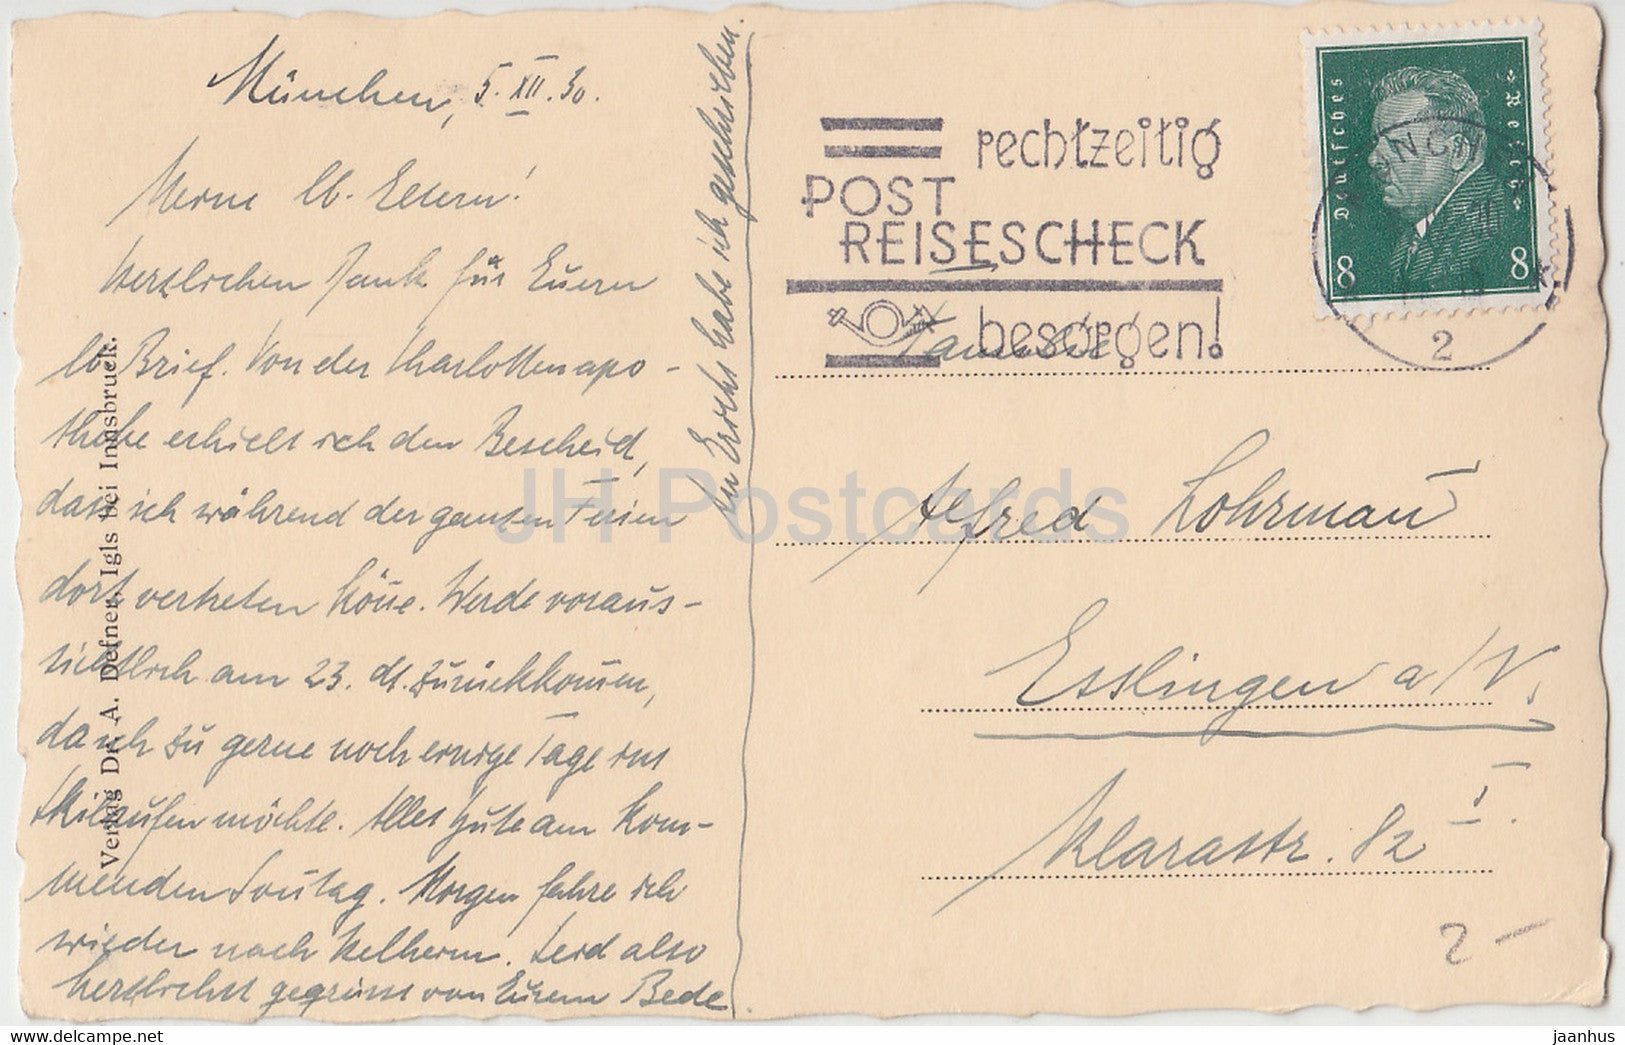 München, 5. XII. 30.
Meine lb. Eltern!
Herzlichen Dank für Euern
lb. Brief. Von der Charlottenapo-
theke erhielt ich den Bescheid,
dass ich während der ganzen Ferien
dort vertreten köne. Werde voraus-
sichtlich am 23. ds. zurückkomen,
da ich zu gerne noch einige Tage ins
Skilaufen möchte. Alles Gute am kom-
menden Sontag. Morgen fahre ich
wieder nach Kelheim. Seid also
herzlichst gegrüsst von Eurem Bede
An Erichs habe ich geschrieben.
Verlag Dr. A. Defner, Igls bei Innsbruck.
rechtzeitig
POST
REISESCHECK
besorgen!
Deutsches Reich
8 8
2
Familie
Alfred Lohrman
Esslingen a/N.
Klarastr. 82 I.
2 -
JH Postcards
hippostcard.com
jaanhus